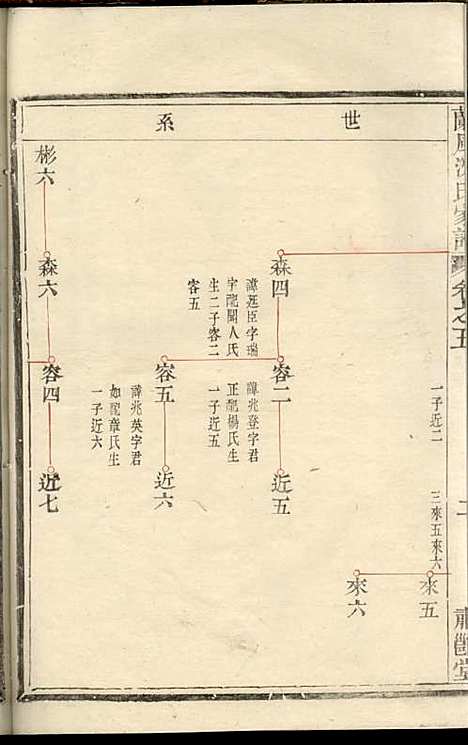 世系
卷之五
二
一子近二
三來五來六
來五
來六
森四
諱廷臣字瑞
宇配聞人氏
生二子容二
容五
容二
諱兆登字君
正配楊氏生
一子近五
近五
容五
諱兆英字君
如配章氏生
一子近六
近六
彬六
森六
容四
近七